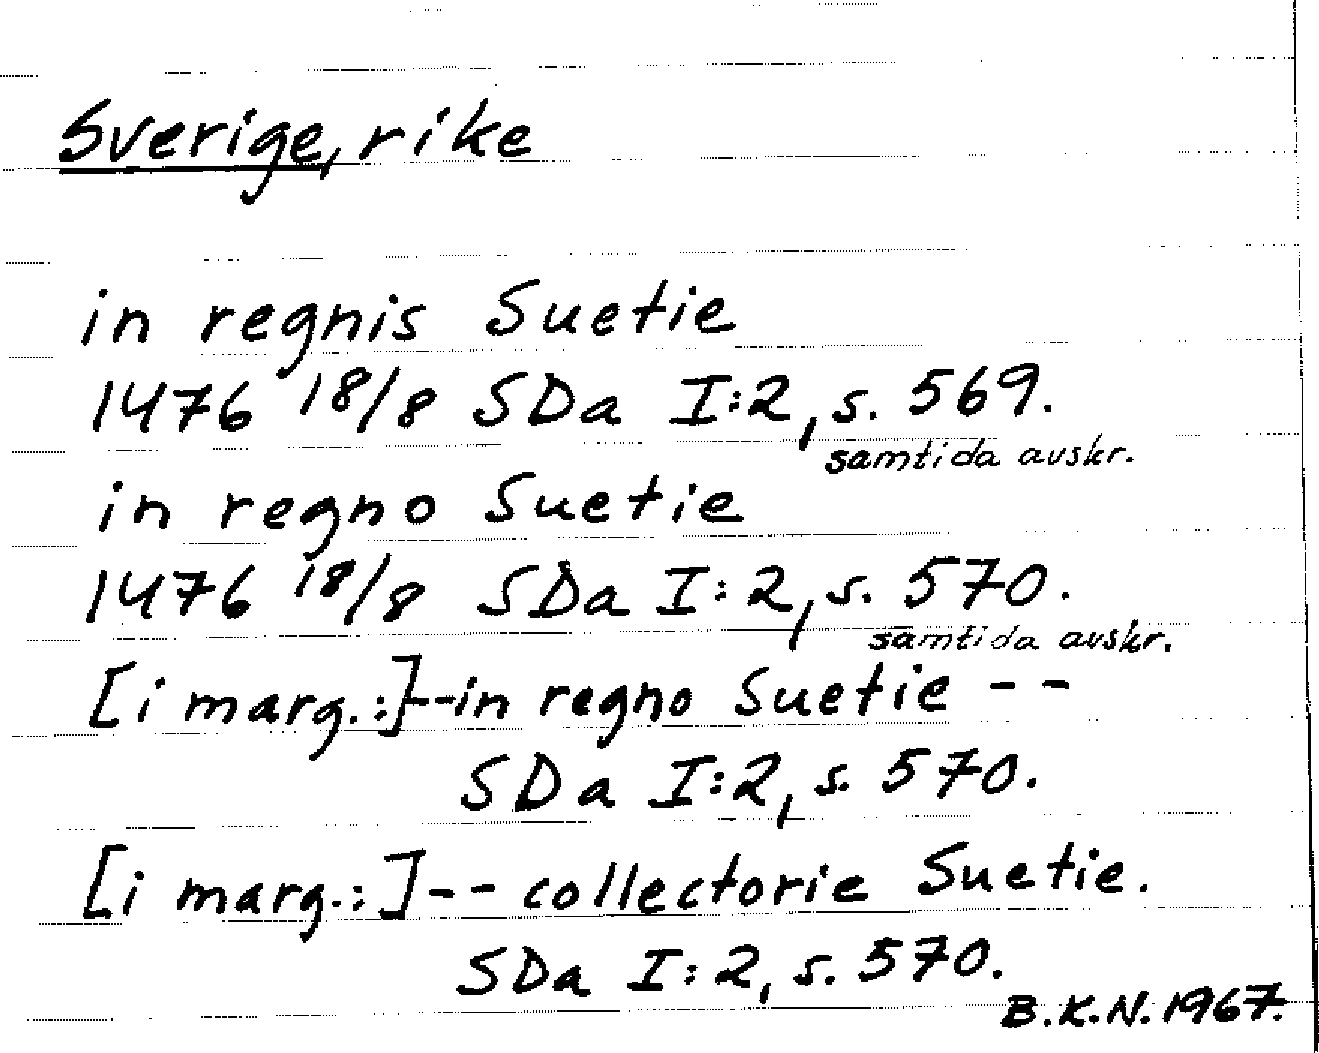 Sverige, rike
in regnis Suetie
1476 18/8 SDa I:2, s. 569.
samtida avskr.
in regno Suetie
1476 18/8 SDa I:2, s. 570.
samtida avskr.
[i marg.:]--in regno Suetie --
SDa I:2, s. 570.
[i marg.:]-- collectorie Suetie.
SDa I:2, s. 570.
B.K.N. 1967.